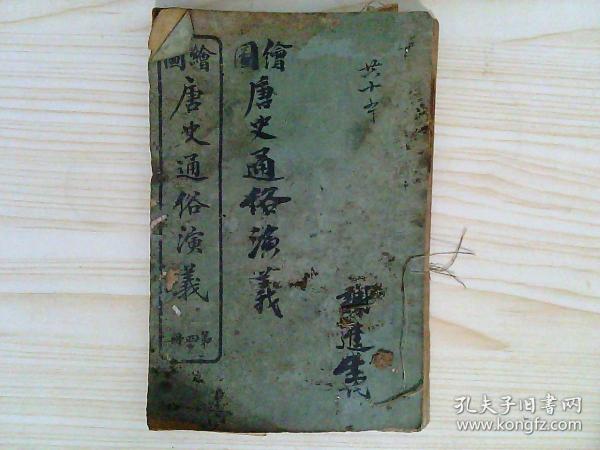 共十本
繪圖
唐史通俗演義
繪圖
唐史通俗演義
第四冊
進生
孔夫子旧书网
www.kongfz.com